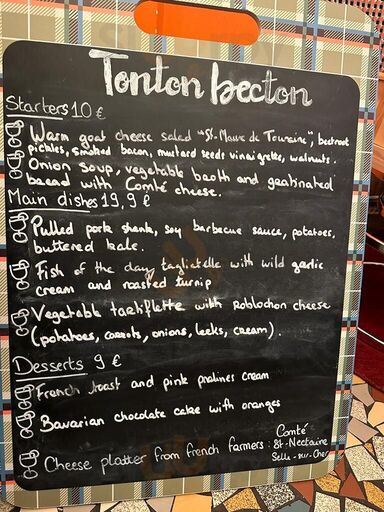 Tonton becton
Starters 10 €
Warm goat cheese salad "St-Maure de Touraine", beetroot
pickles, smoked bacon, mustard seeds vinaigrette, walnuts.
Onion soup, vegetable broth and geatinated
bread with Comté cheese.
Main dishes 19,9 €
Pulled pork shank, soy barbecue sauce, potatoes,
buttered kale.
Fish of the day, tagliatelle with wild garlic
cream and roasted turnip
Vegetable tartiflette with Roblochon cheese
(potatoes, carrots, onions, leeks, cream).
Desserts 9 €
French toast and pink pralines cream
Bavarian chocolate cake with oranges
Cheese platter from french farmers : Comté
St-Nectaire
Selle-sur-Cher